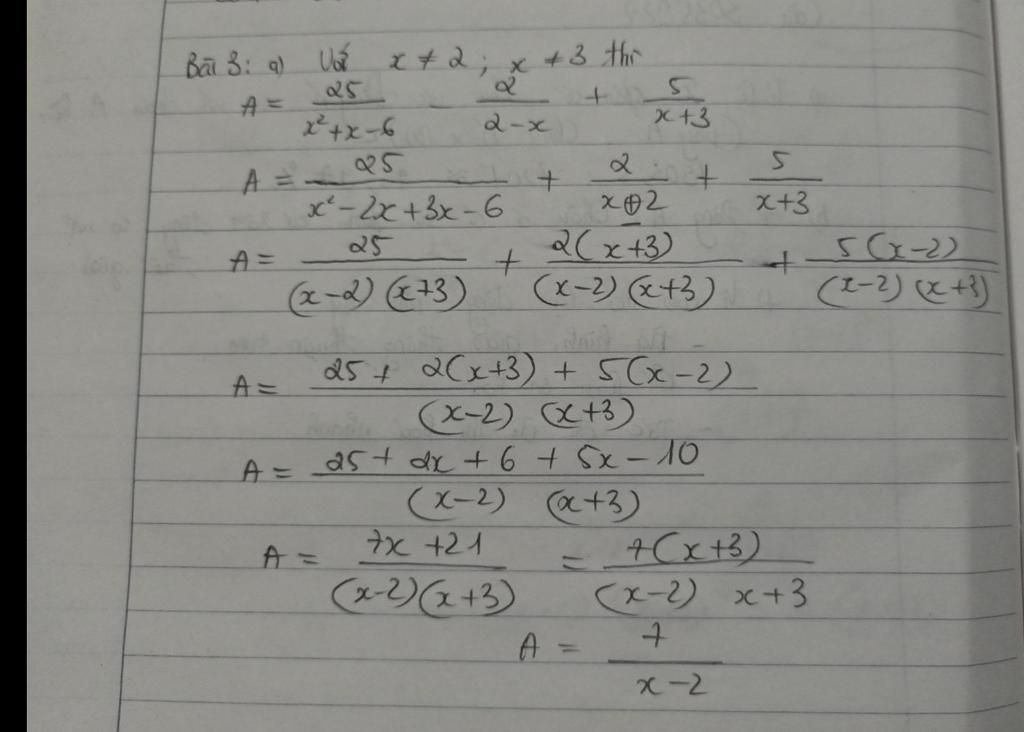 Bài 3: a) Với x ≠ 2 ; x ≠ 3 thì
A = 25/(x²+x-6) - 2/(2-x) + 5/(x+3)
A = 25/(x²-2x+3x-6) + 2/(x-2) + 5/(x+3)
A = 25/((x-2)(x+3)) + 2(x+3)/((x-2)(x+3)) + 5(x-2)/((x-2)(x+3))
A = (25+2(x+3)+5(x-2))/((x-2)(x+3))
A = (25+2x+6+5x-10)/((x-2)(x+3))
A = (7x+21)/((x-2)(x+3)) = 7(x+3)/((x-2) x+3)
A = 7/(x-2)